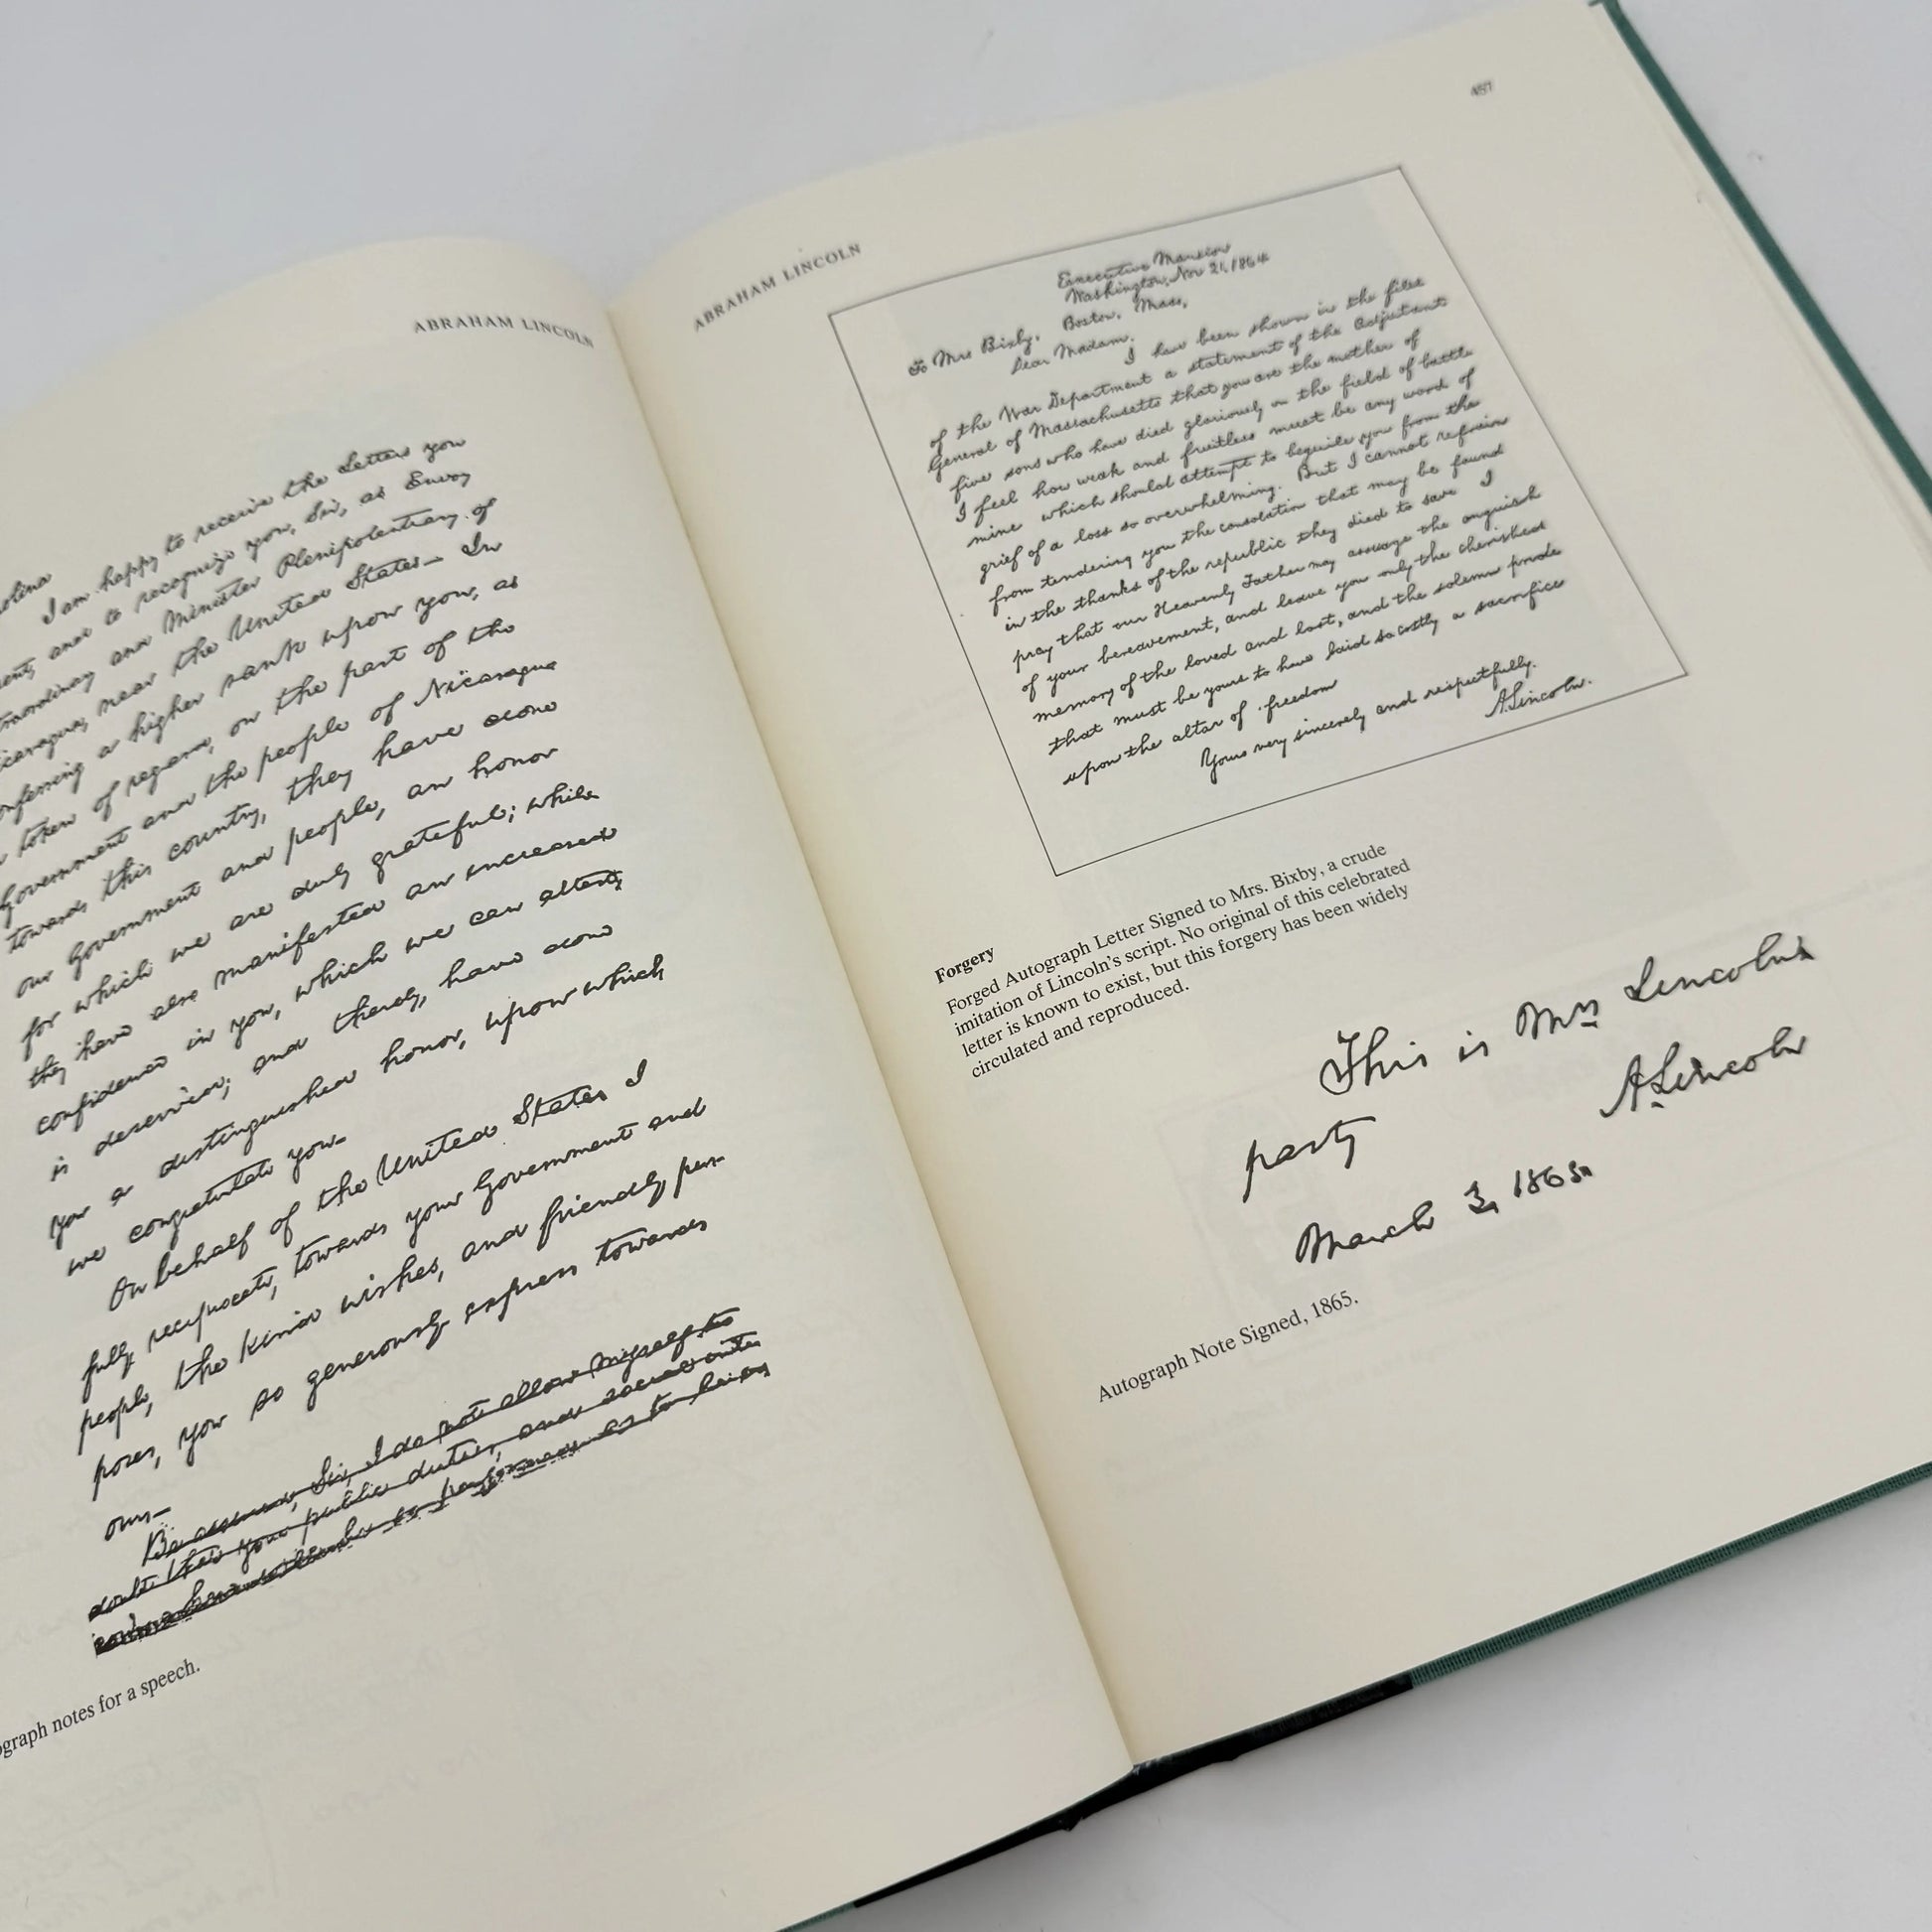 ABRAHAM LINCOLN
I am happy to receive the letters you
and to recognize you, Sir, as Envoy
and Minister Plenipotentiary of
near the United States— In
a higher rank upon you, as
token of regard, on the part of the
Government and the people of Nicaragua
towards this country, they have done
our Government and people, an honor
for which we are duly grateful; while
they have also manifested an increased
confidence in you, which we can attest,
is deserved; and thereby, have done
you a distinguished honor, upon which
we congratulate you—
On behalf of the United States I
fully reciprocate, towards your Government and
people, the kind wishes, and friendly pur-
poses, you so generously express towards
ours—
Be assured, Sir, I do not allow myself to
doubt that your public duties, and social inter
graph notes for a speech.
ABRAHAM LINCOLN
457
Executive Mansion
Washington, Nov 21, 1864
To Mrs Bixby, Boston, Mass,
Dear Madam, I have been shown in the files
of the War Department a statement of the Adjutant
General of Massachusetts that you are the mother of
five sons who have died gloriously on the field of battle
I feel how weak and fruitless must be any word of
mine which should attempt to beguile you from the
grief of a loss so overwhelming. But I cannot refrain
from tendering you the consolation that may be found
in the thanks of the republic they died to save I
pray that our Heavenly Father may assuage the anguish
of your bereavement, and leave you only the cherished
memory of the loved and lost, and the solemn pride
that must be yours to have laid so costly a sacrifice
upon the altar of freedom
Yours very sincerely and respectfully.
A. Lincoln.
Forgery
Forged Autograph Letter Signed to Mrs. Bixby, a crude
imitation of Lincoln's script. No original of this celebrated
letter is known to exist, but this forgery has been widely
circulated and reproduced.
This is Mrs Lincoln's
party
A. Lincoln
March 3, 1865.
Autograph Note Signed, 1865.